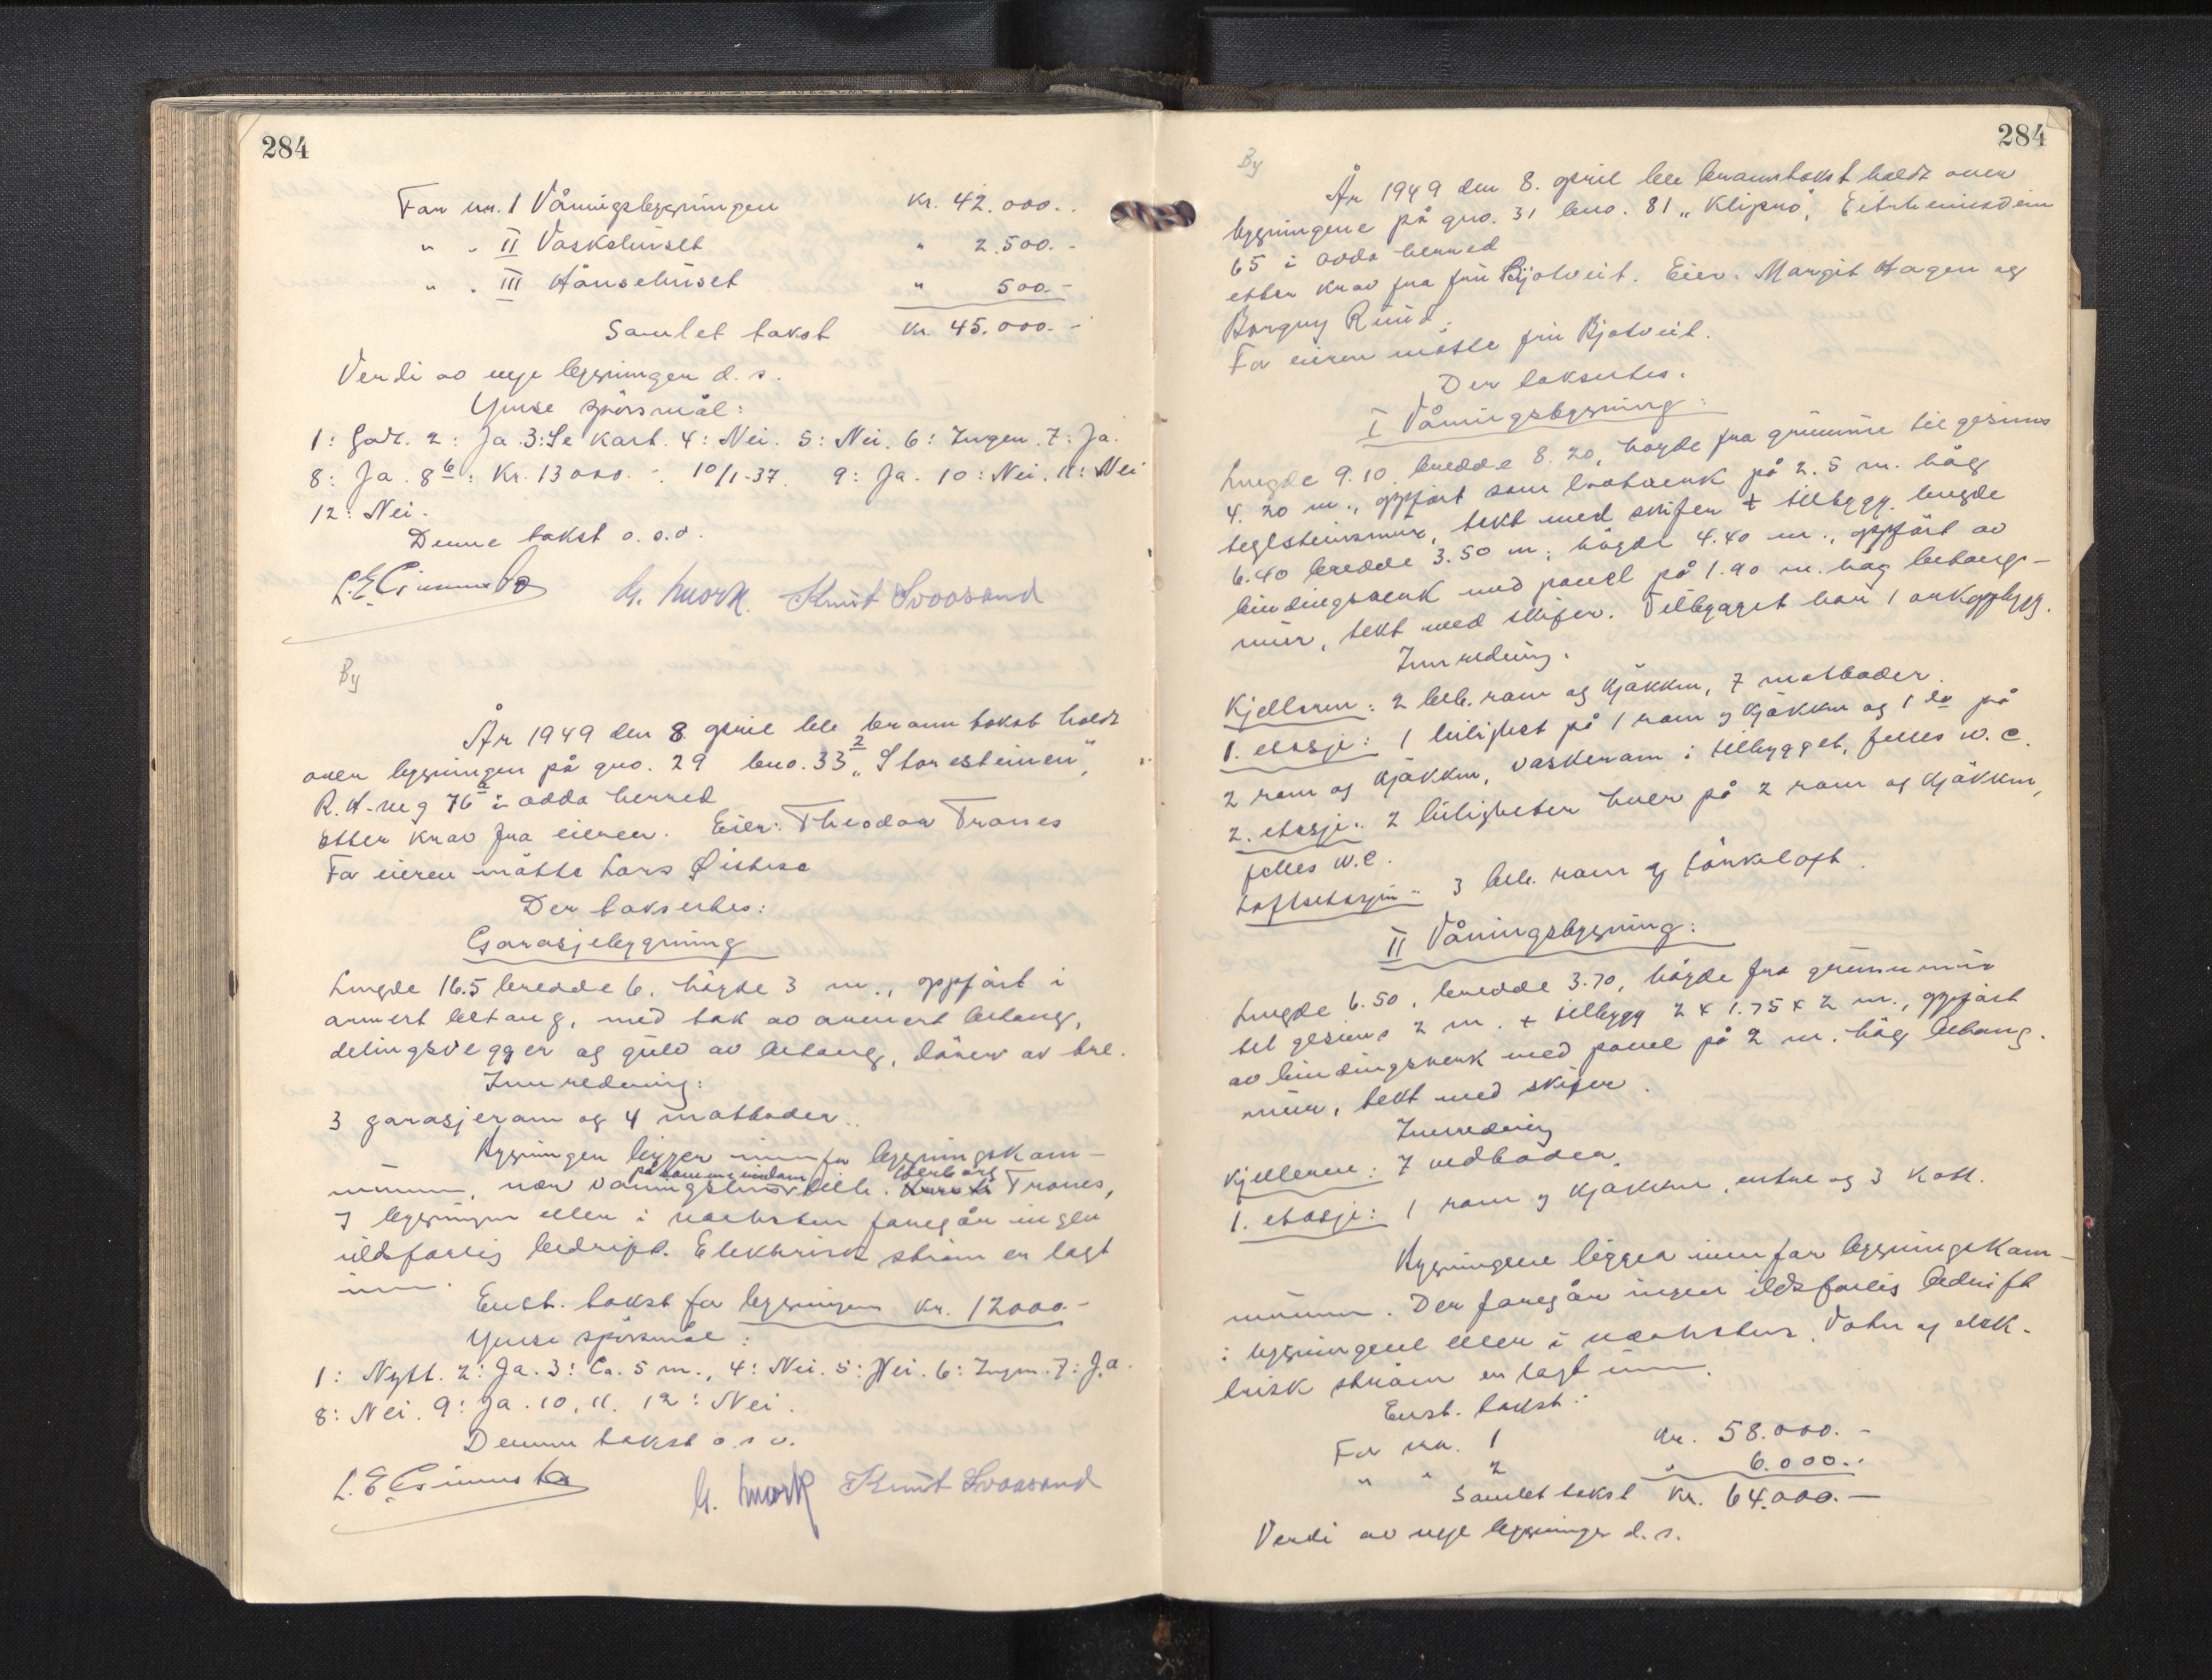 284
For nr. I Våningsbygningen Kr. 42.000.-
" " II Vaskehuset " 2.500.-
" " III Hønsehuset " 500.-
Samlet takst Kr. 45.000.-
Verdi av nye bygningen d. s.
Ymse spörsmål:
1: Godt. 2: Ja. 3: Se kart. 4: Nei. 5: Nei. 6: Ingen. 7: Ja.
8: Ja. 8b: Kr. 13000.- 10/1-37. 9: Ja. 10: Nei. 11: Nei
12: Nei.
Denne takst o.s.v.
G. Mork. Knut Svoosand
By
År 1949 den 8. april ble branntakst holdt
over bygningen på gno. 29 bno. 33 2 „Storesteinen",
R.H-veg 76a i Odda herred
etter krav fra eieren. Eier: Theodor Trones
For eieren møtte Lars Øistese
Der takseertes:
Garasjebygning
Lengde 16.5 bredde 6, høyde 3 m., oppført i
armert betong, med tak av armert betong,
delingsvegger og gulv av betong, dörer av tre.
Innredning:
3 garasjerom og 4 matboder.
Bygningen ligger innenfor bygningskom-
munen, nær våningshus til Trones,
I bygningen eller i nærheten foregår ingen
ildsfarlig bedrift. Elektrisk strøm er lagt
inn.
Enst. takst for bygningen Kr. 12000.-
Ymse spörsmål:
1: Nytt. 2: Ja. 3: Ca. 5 m., 4: Nei. 5: Nei. 6: Ingen. 7: Ja.
8: Nei. 9: Ja. 10, 11. 12: Nei.
Denne takst o.s.v.
G. Mork Knut Svoosand
284
By
År 1949 den 8. april ble branntakst holdt over
bygningene på gno. 31 bno. 81 „Klipno",
65 i Odda herred
etter krav fra fru Bjotveit. Eier: Margit Hagen og
Borgny Ruud.
For eieren møtte fru Bjotveit.
Der takseertes.
I Våningsbygning:
Lengde 9.10 bredde 8.20, høyde fra grunnmur til gesims
4.20 m., oppført som på 2.5 m. høg
teglsteinsmur, tekt med skifer + tilbygg lengde
6.40 bredde 3.50 m; høyde 4.40 m., oppført av
bindingsverk med panel på 1.90 m. høg betong-
mur, tekt med skifer. Tilbygget har 1 arkoppbygg.
Innredning.
Kjelleren: 2 beb. rom og kjøkken, 7 matboder.
1. etasje: 1 leilighet på 1 rom og kjøkken og 1 do på
2 rom og kjøkken, vaskerom i tilbygget, felles w.c.
2. etasje: 2 leiligheter hver på 2 rom og kjøkken,
felles w.c.
Loftsetasjen: 3 beb. rom og tørkeloft.
II Våningsbygning:
Lengde 6.50, bredde 3.70, høyde fra grunnmur
til gesims 2 m. + tilbygg 2 x 1.75 x 2 m., oppført
av bindingsverk med panel på 2 m. høg betong-
mur, tekt med skifer.
Innredning
Kjelleren: 7 vedboder.
1. etasje: 1 rom og kjøkken, entre og 3 kott.
Bygningene ligger innenfor bygningskom-
munen. Der foregår ingen ildsfarlig bedrift
i bygningene eller i nærheten. Vatn og elek-
trisk strøm er lagt inn.
Enst. takst:
For nr. 1 Kr. 58.000.-
" " 2 " 6.000.-
Samlet takst Kr. 64.000.-
Verdi av nye bygninger d. s.